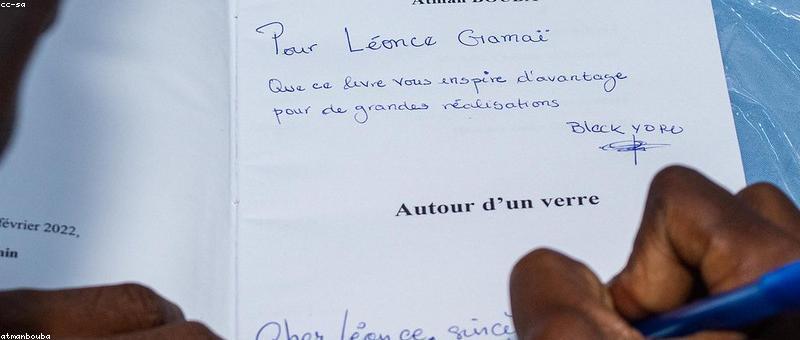 cc-sa
Atman BOUBA
Pour Léonce Gamaï
Que ce livre vous inspire d'avantage
pour de grandes réalisations
Black YORO
Autour d'un verre
février 2022,
Cher léonce, sincè
atmanbouba